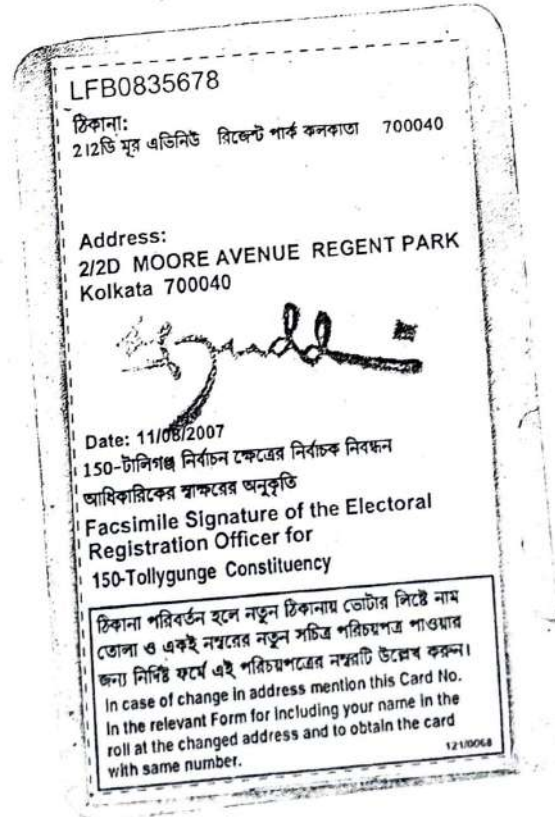 LFB0835678
ঠিকানা:
2া2ডি মূর এভিনিউ রিজেন্ট পার্ক কলকাতা 700040
Address:
2/2D MOORE AVENUE REGENT PARK
Kolkata 700040
Date: 11/08/2007
150-টালিগঞ্জ নির্বাচন ক্ষেত্রের নির্বাচক নিবন্ধন
আধিকারিকের স্বাক্ষরের অনুকৃতি
Facsimile Signature of the Electoral
Registration Officer for
150-Tollygunge Constituency
ঠিকানা পরিবর্তন হলে নতুন ঠিকানায় ভোটার লিষ্টে নাম
তোলা ও একই নম্বরের নতুন সচিত্র পরিচয়পত্র পাওয়ার
জন্য নির্দিষ্ট ফর্মে এই পরিচয়পত্রের নম্বরটি উল্লেখ করুন।
In case of change in address mention this Card No.
In the relevant Form for including your name in the
roll at the changed address and to obtain the card
with same number.
121/0068